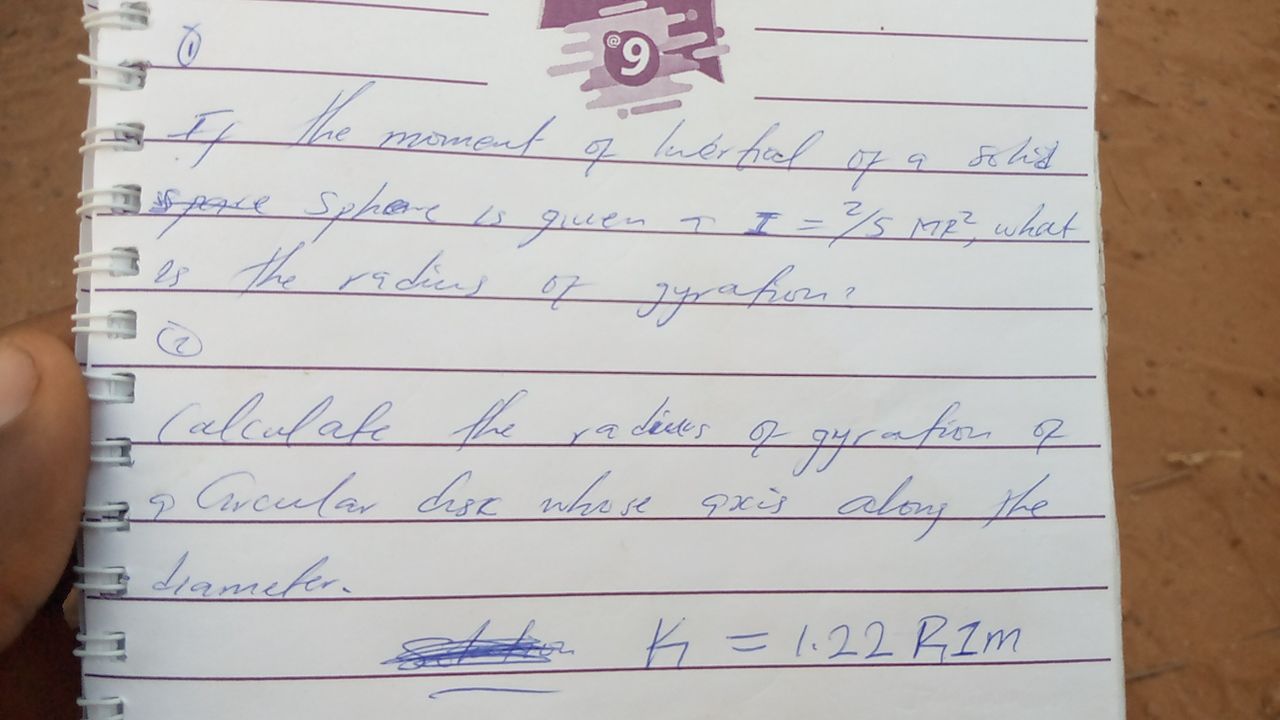 ①
@9
If the moment of Inertial of a solid
sphere is given I = 2/5 MR², what
is the radius of gyration?
②
Calculate the radius of gyration of
a Circular disk whose axis along the
diameter.
K = 1.22 R I m